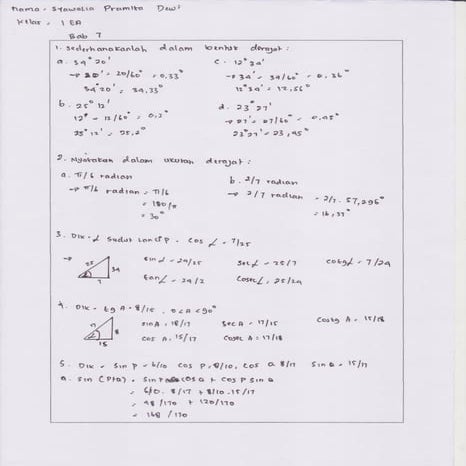 Nama : Syawalia Pramita Dewi
Kelas : 1 EA
Bab 7
1. Sederhanakanlah dalam bentuk derajat :
a. 34° 20'
→ 20' = 20/60° = 0,33°
34° 20' = 34,33°
b. 25° 12'
12° = 12/60° = 0,2°
25° 12' = 25,2°
c. 12° 34'
→ 34' = 34/60° = 0,56°
12° 34' = 12,56°
d. 23° 27'
→ 27' = 27/60° = 0,45°
23° 27' = 23,45°
2. Nyatakan dalam ukuran derajat :
a. π/6 radian
→ π/6 radian = π/6
= 180/π
= 30°
b. 2/7 radian
→ 2/7 radian = 2/7 . 57,296°
= 16,37°
3. Dik = ∠ sudut lancip = cos ∠ = 7/25
→ 25 24 7
sin ∠ = 24/25 sec ∠ = 25/7 cotg ∠ = 7/24
tan ∠ = 24/7 cosec ∠ = 25/24
4. Dik = tg A = 8/15 , 0 < A < 90°
17 8 15
sin A = 18/17 sec A = 17/15 cotg A = 15/18
cos A = 15/17 cosec A = 17/18
5. Dik = sin P = 6/10 cos P = 8/10, cos Q 8/17 sin Q = 15/17
a. sin (P+Q) = sin P cos Q + cos P sin Q
= 6/10 . 8/17 + 8/10 . 15/17
= 48/170 + 120/170
= 168 / 170